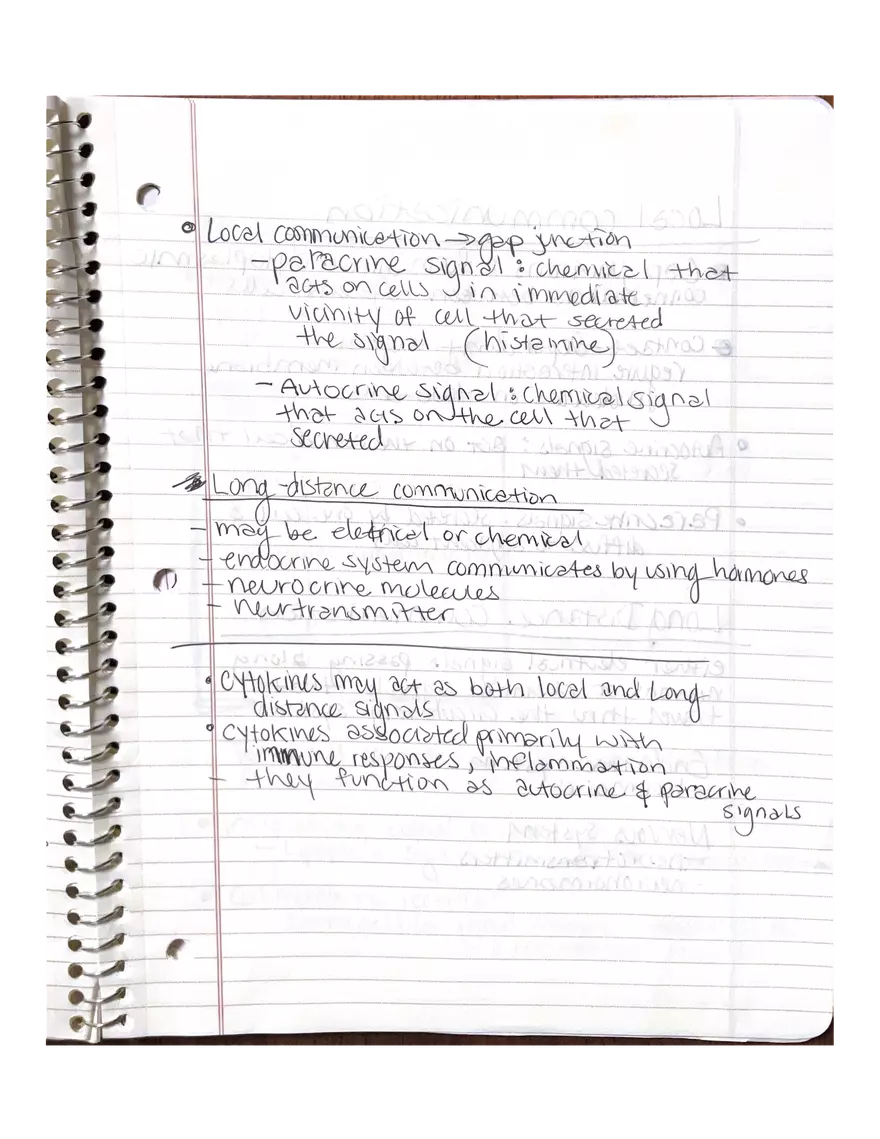 • Local communication → gap junction
- paracrine signal : chemical that
acts on cells in immediate
vicinity of cell that secreted
the signal (histamine)
- Autocrine signal : chemical signal
that acts on the cell that
secreted
Long-distance communication
- may be eletrical or chemical
- endocrine system communicates by using hormones
- neurocrine molecules
- neurtransmitter
• Cytokines may act as both local and Long
distance signals
• Cytokines associated primarily with
immune responses, inflammation
- they function as autocrine & paracrine
signals